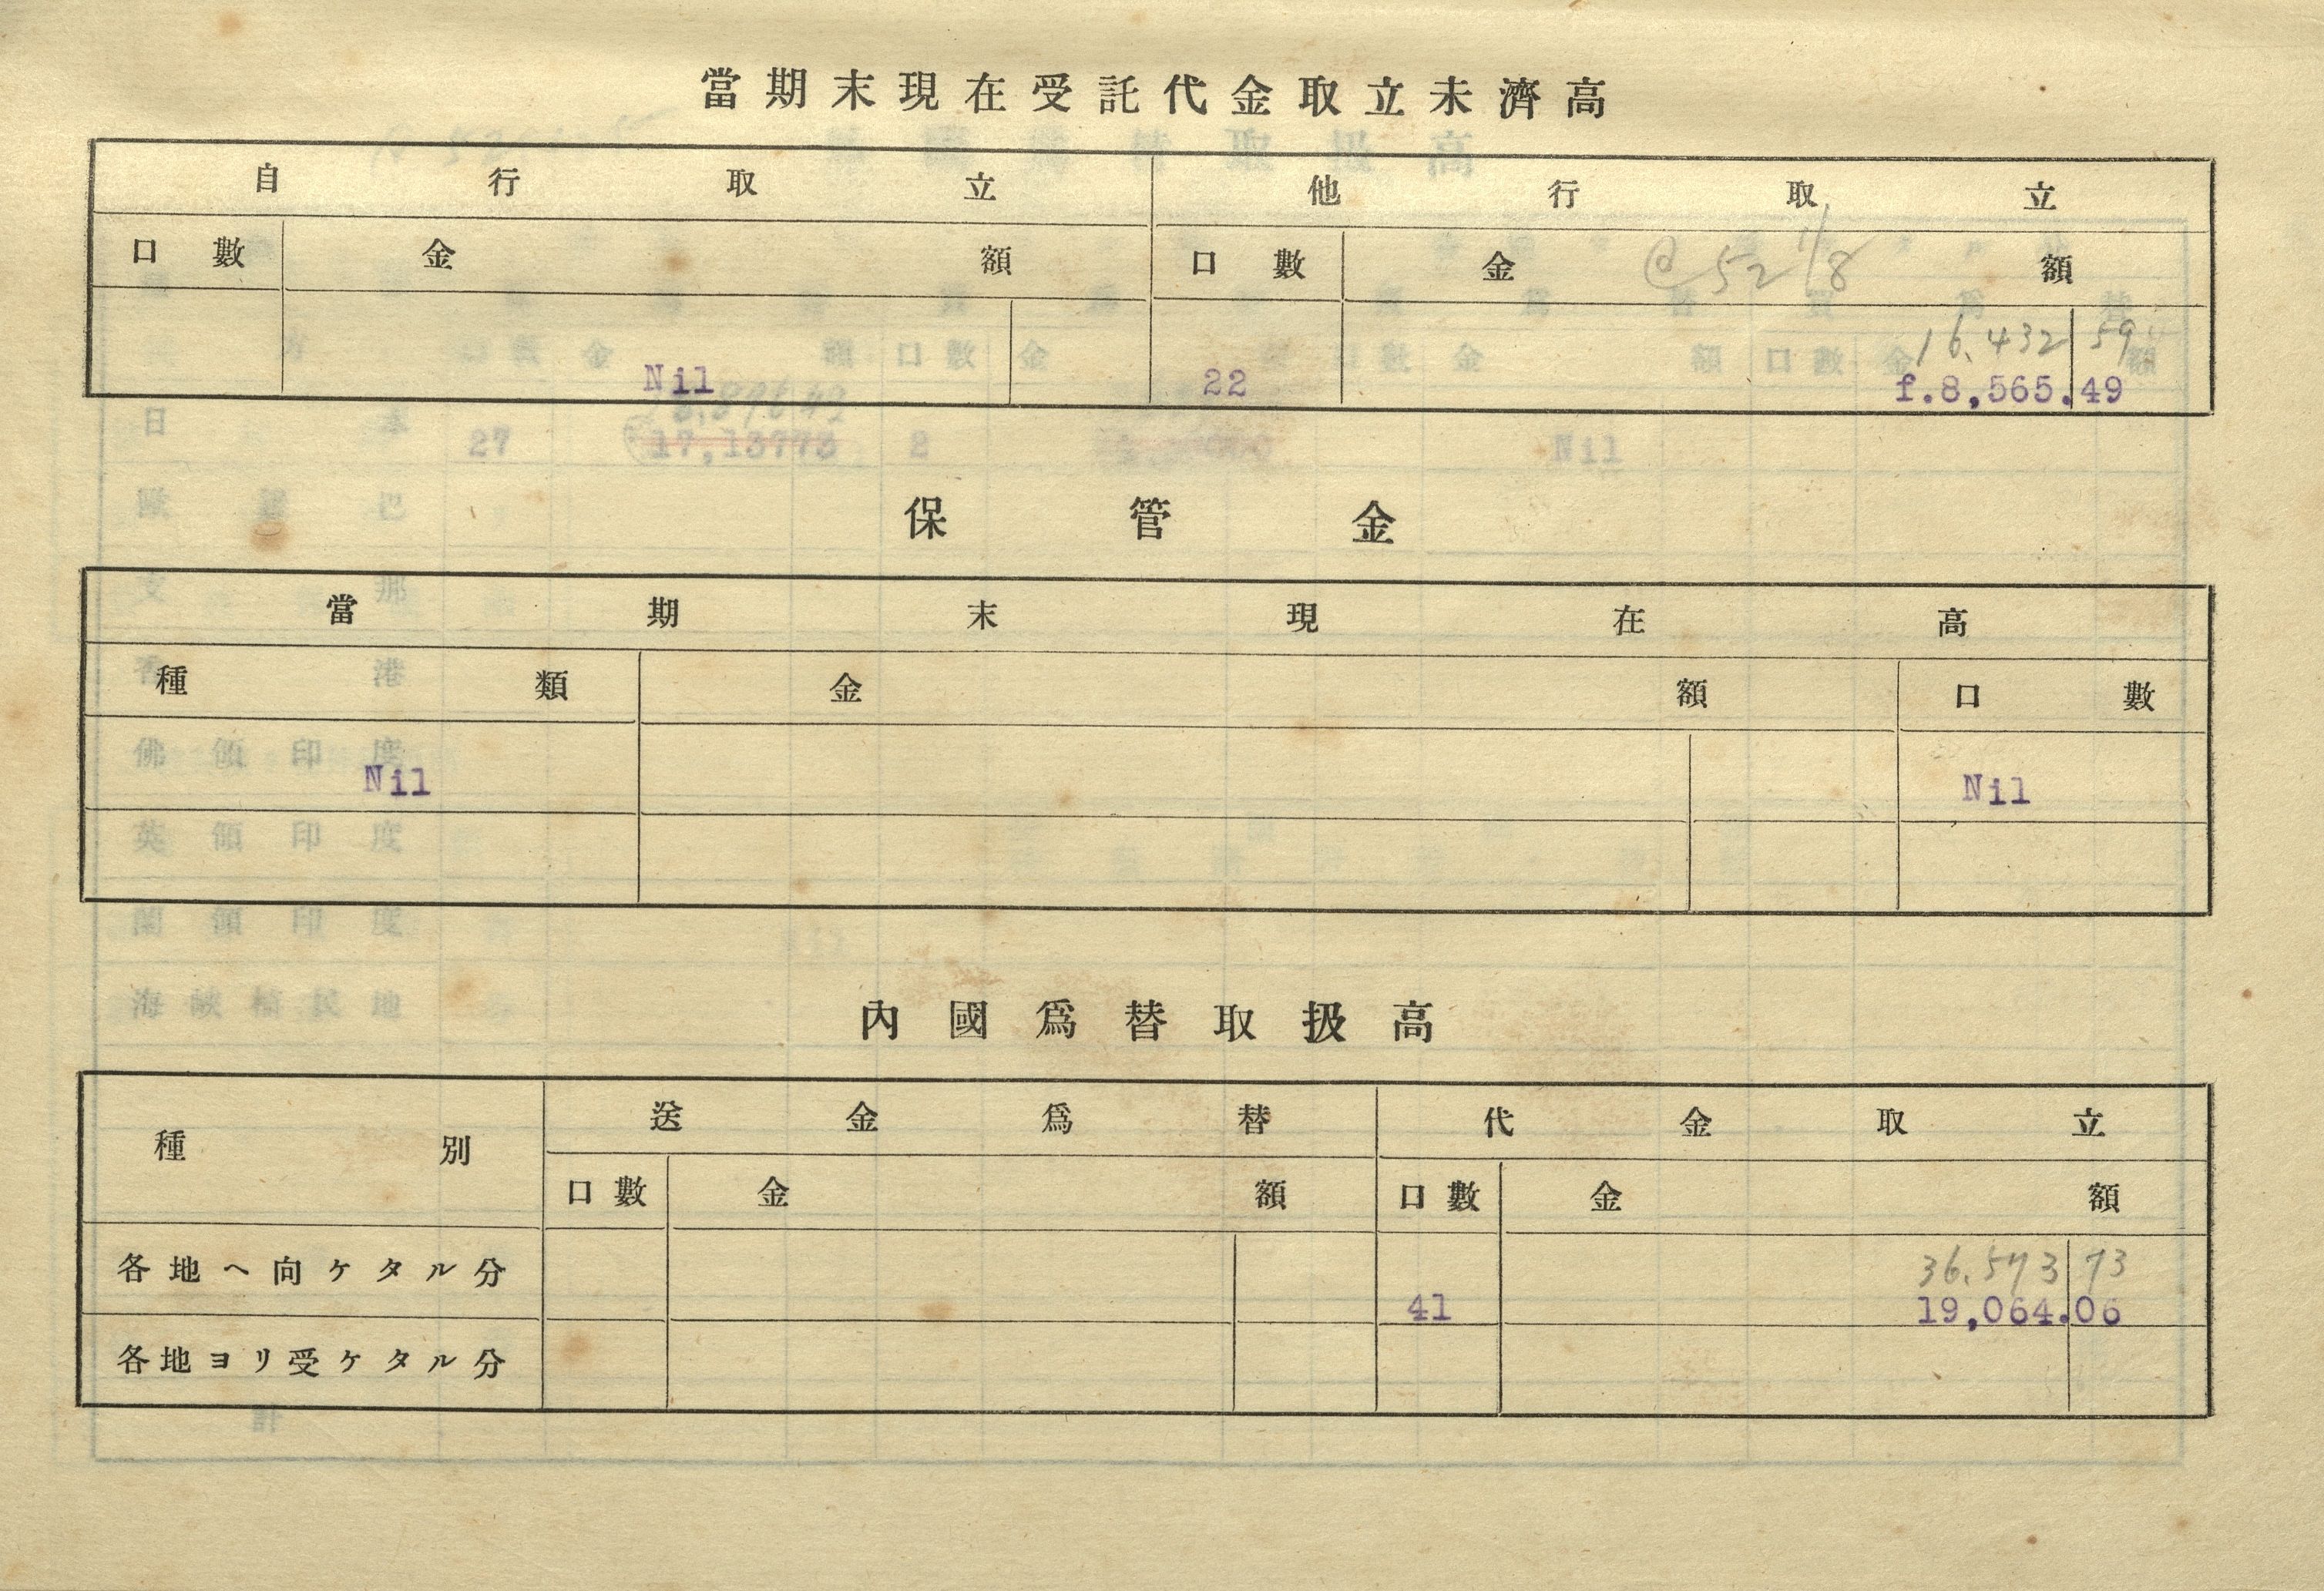 當期末現在受託代金取立未濟高
自行取立 他行取立
口數 金額 口數 金額 @ 52 1/8
16.432 59
Nil 22 f.8,565.49
保管金
當期末現在高
種類 金額 口數
Nil Nil
內國爲替取扱高
種別 送金爲替 代金取立
口數 金額 口數 金額
各地へ向ケタル分 36.573 73
41 19,064.06
各地ヨリ受ケタル分